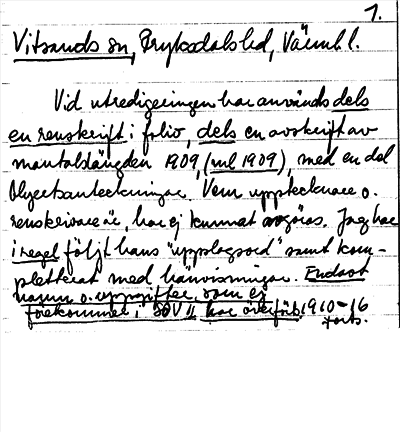 1.
Vitsands sn, Fryksdals hd, Värml l.
Vid utredigeringen har använts dels
en renskrift i folio, dels en avskrift av
mantalslängden 1909, (ml 1909), med en del
blyertsanteckningar. Vem upptecknare o.
renskrivare är, har ej kunnat avgöras. Jag har
i regel följt hans "uppslagsord" samt kom-
pletterat med hänvisningar. Endast
namn o. uppgifter som ej
förekommer i SOV II har överförts. 1910-16
forts.